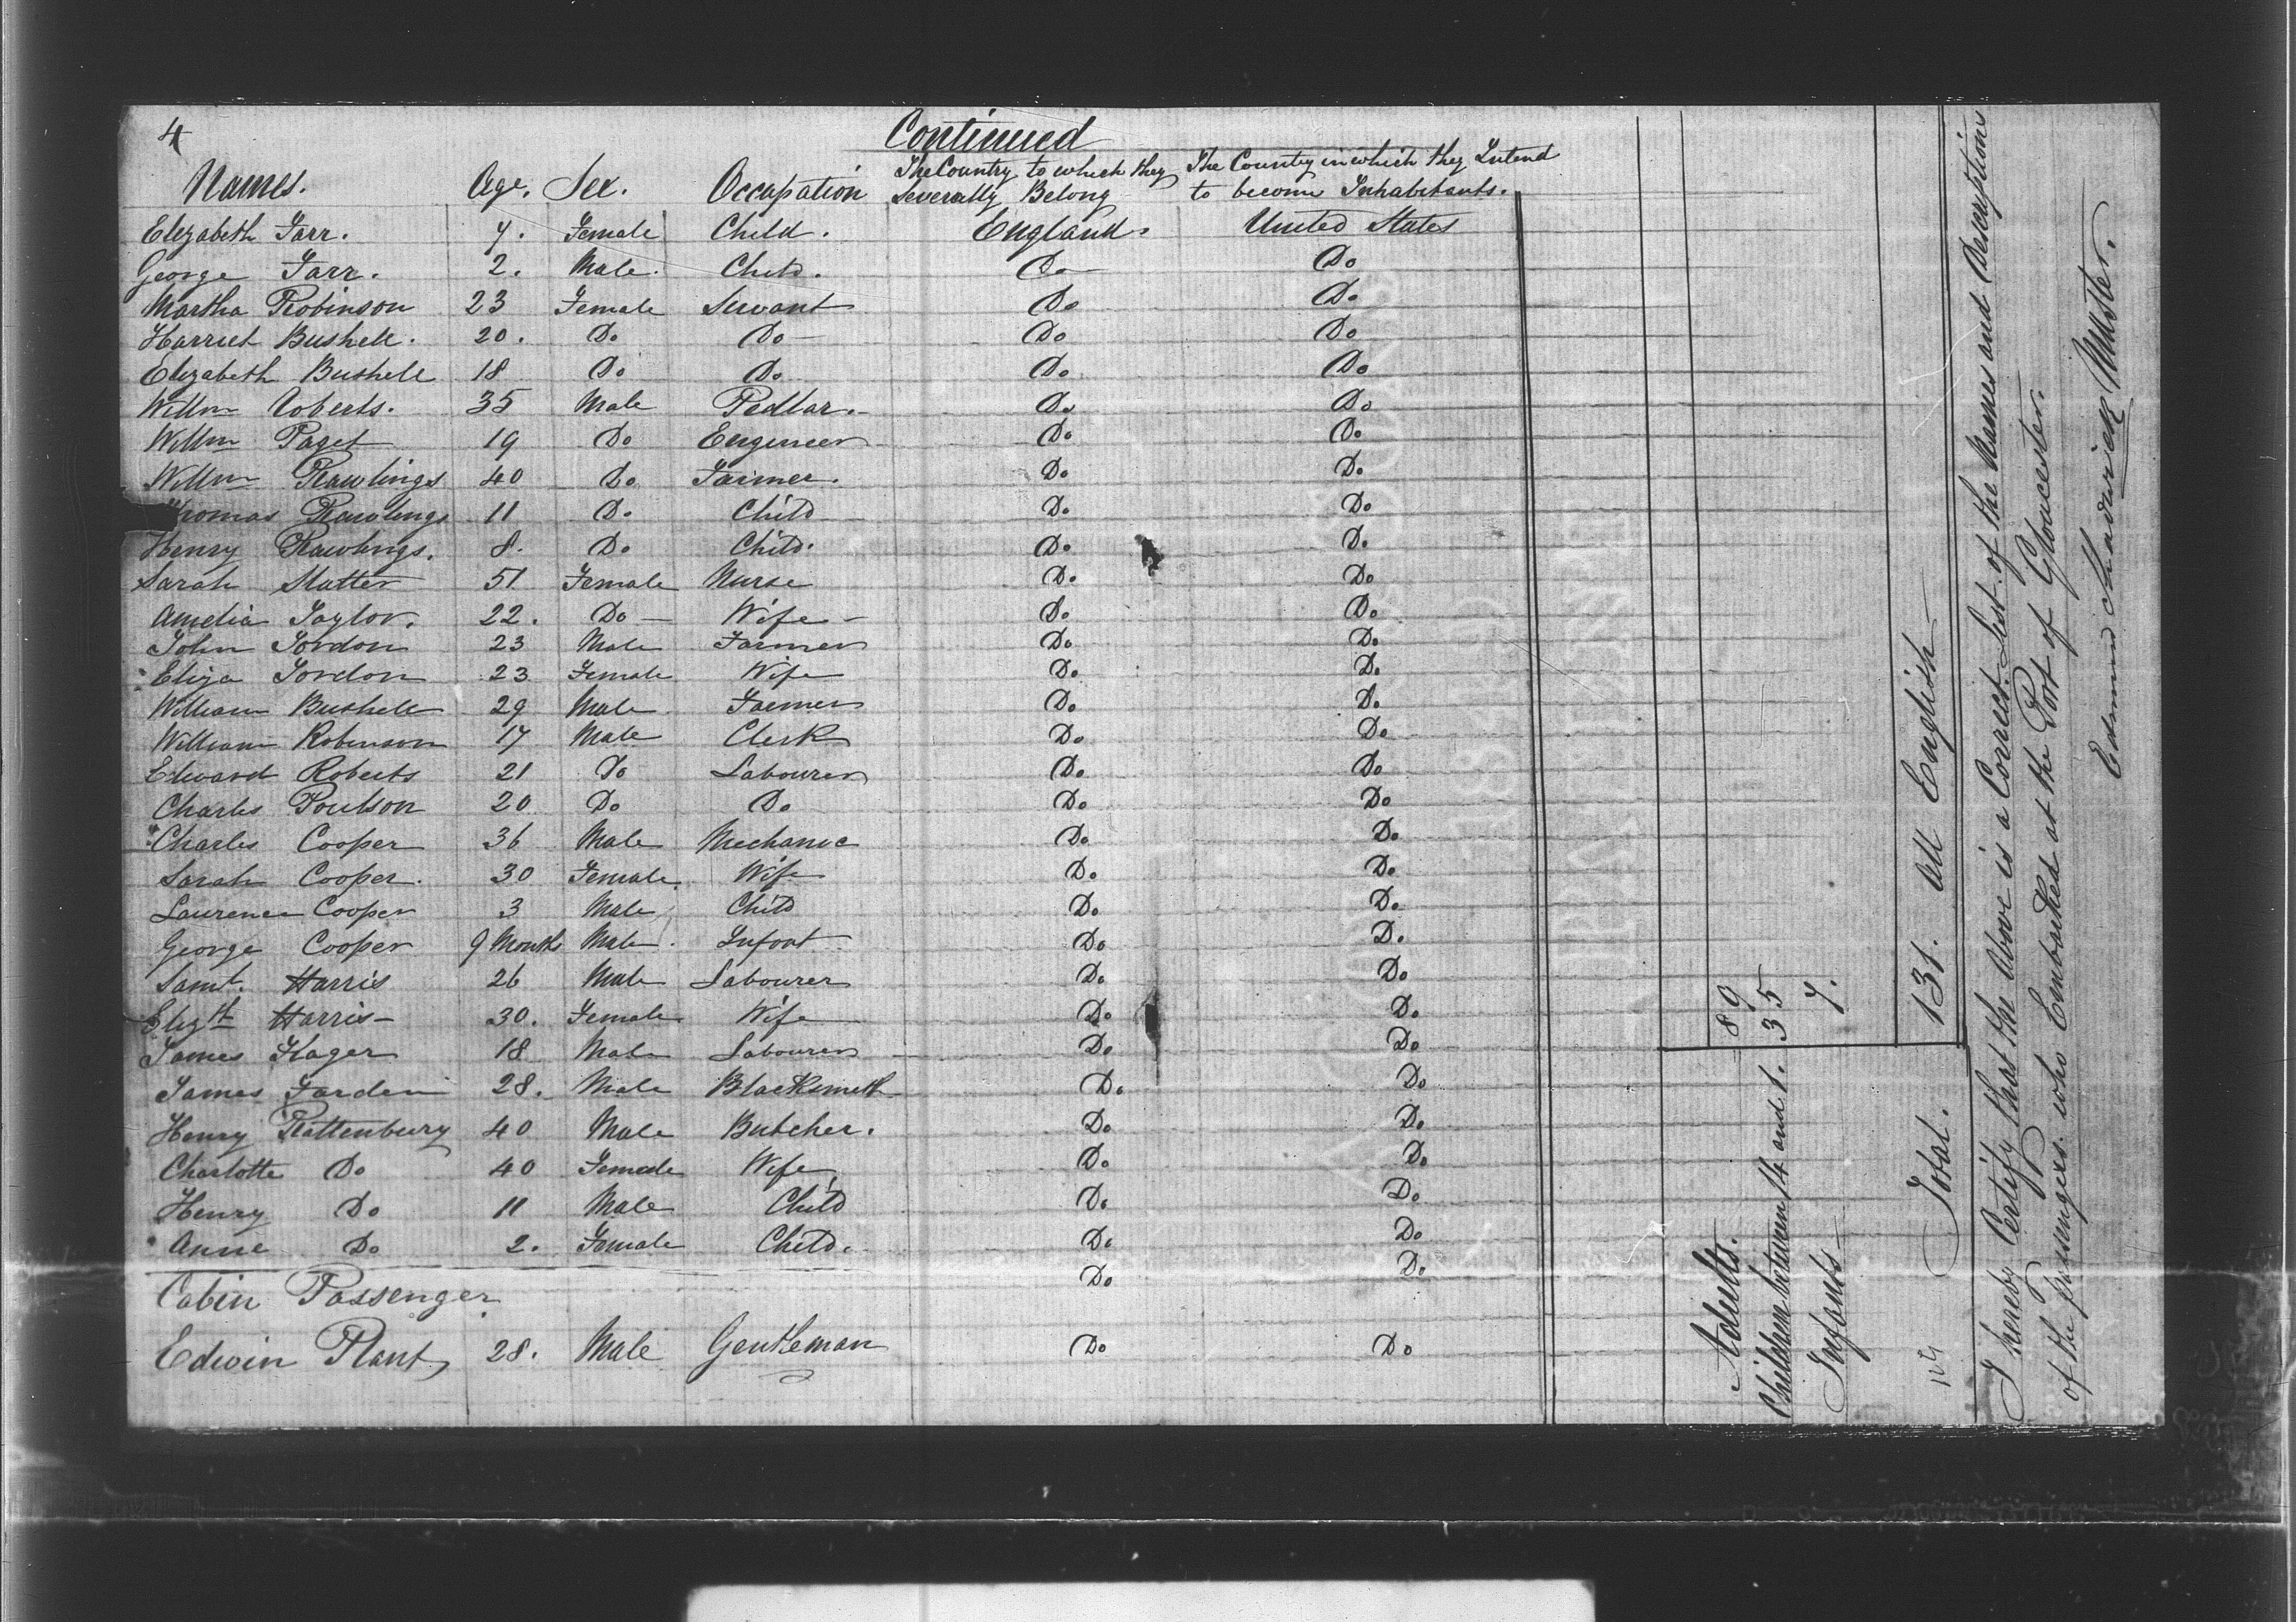 4
Continued
Names. Age. Sex. Occupation The Country to which they severally Belong The Country in which they Intend to become Inhabitants.
Elizabeth Farr. 7. Female Child. England. United States
George Farr. 2. Male. Child. Do Do
Martha Robinson 23 Female Servant Do Do
Harriet Bushell. 20. Do Do Do Do
Elizabeth Bushell 18 Do Do Do Do
Willm Roberts. 35 Male Pedlar. Do Do
Willm Paget 19 Do Engineer Do Do
Willm Rawlings 40 Do Farmer. Do Do
Thomas Rawlings 11 Do Child Do Do
Henry Rawlings. 8. Do Child. Do Do
Sarah Slatter 51 Female Nurse Do Do
Amelia Taylor. 22. Do Wife Do Do
John Jordon 23 Male Farmer Do Do
Eliza Jordon 23 Female Wife Do Do
William Bushell 29 Male Farmer Do Do
William Robinson 17 Male Clerk Do Do
Edward Roberts 21 Do Labourer Do Do
Charles Poulson 20 Do Do Do Do
Charles Cooper 36 Male Mechanic Do Do
Sarah Cooper. 30 Female Wife Do Do
Laurence Cooper 3 Male Child Do Do
George Cooper 9 Months Male Infant Do Do
Saml. Harris 26 Male Labourer Do Do
Elizth Harris 30. Female Wife Do Do
James Hager 18 Male Labourer Do Do
James Farden 28. Male Blacksmith Do Do
Henry Rattenbury 40 Male Butcher. Do Do
Charlotte Do 40 Female Wife Do Do
Henry Do 11 Male Child Do Do
Anne Do 2. Female Child. Do Do
Cabin Passenger Do Do
Edwin Plant 28. Male Gentleman Do Do
Adults. 89
Children between 14 and 1. 35
Infants 7.
Total. 131. All English
I hereby Certify that the above is a Correct List of the Names and Descriptions
of the Passengers who Embarked at the Port of Gloucester.
Edmund Chadwick Master.